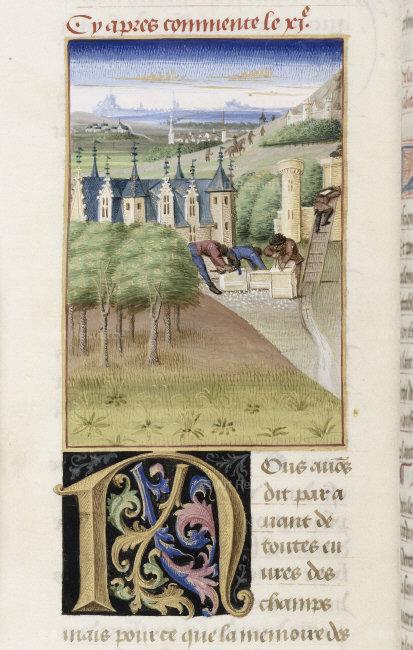 Cy apres commente le xi.e
Nous auōs
dit par a
uant de
toutes eu
ures des
champs
mais pour ce que la memoire des